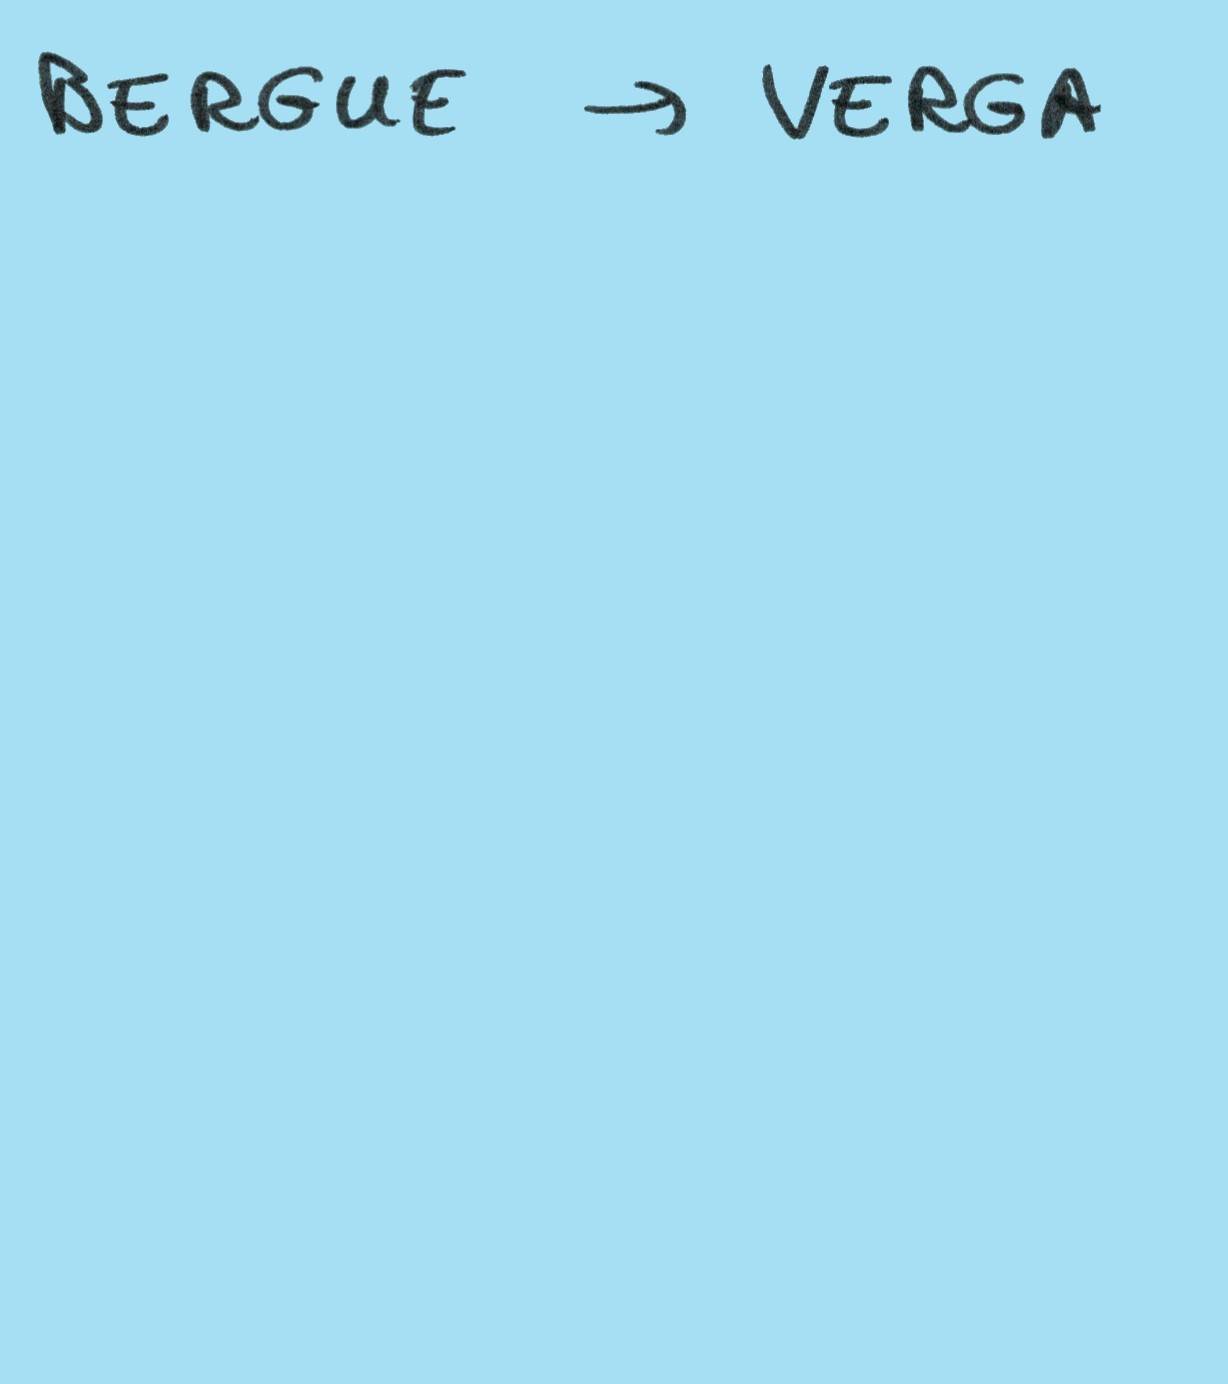 BERGUE → VERGA